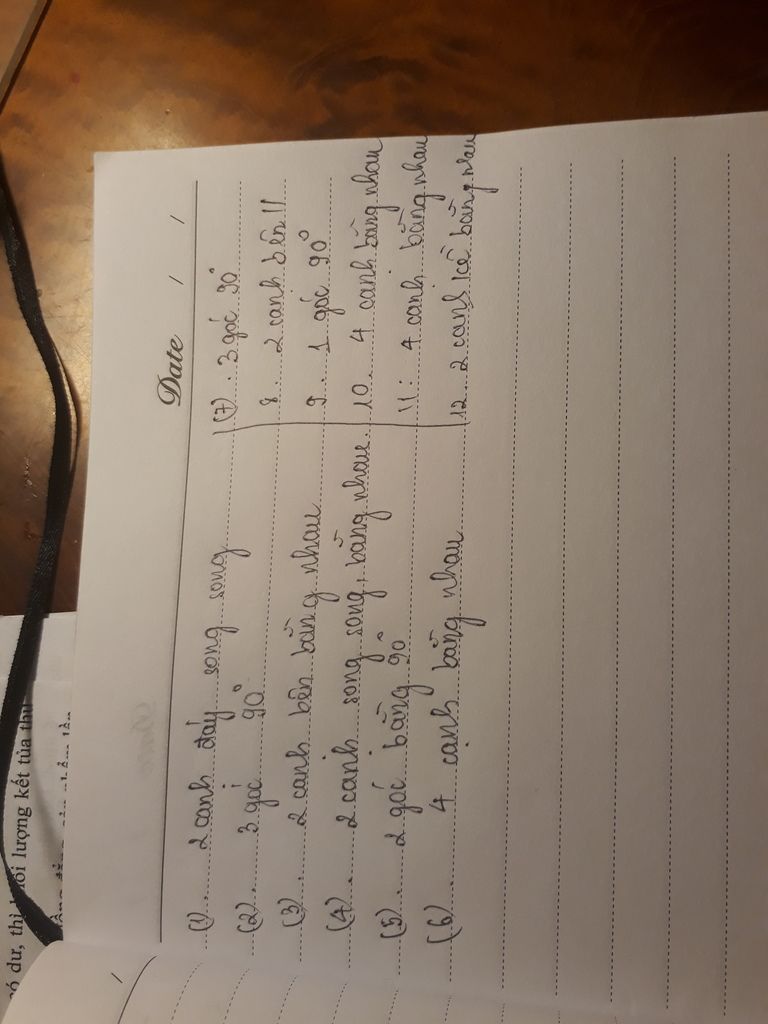 Date / /
(1) 2 cạnh đáy song song
(2) 3 góc 90°
(3) 2 cạnh bên bằng nhau
(4) 2 cạnh song song, bằng nhau
(5) 2 góc bằng 90°
(6) 4 cạnh bằng nhau
(7) 3 góc 90°
8. 2 cạnh bên //
9. 1 góc 90°
10. 4 cạnh bằng nhau
11: 4 cạnh bằng nhau
12. 2 cạnh kề bằng nhau
dư, thì khối lượng kết tủa thu